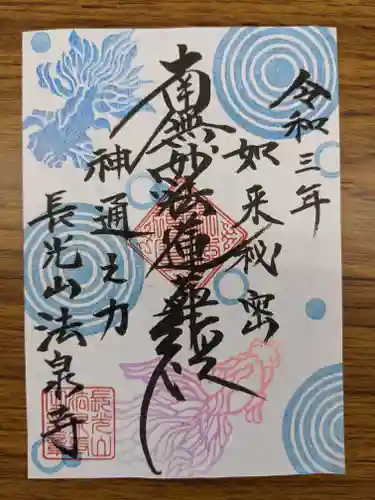 令和三年
如来秘密
南無妙法蓮華経
神通之力
長光山法泉寺